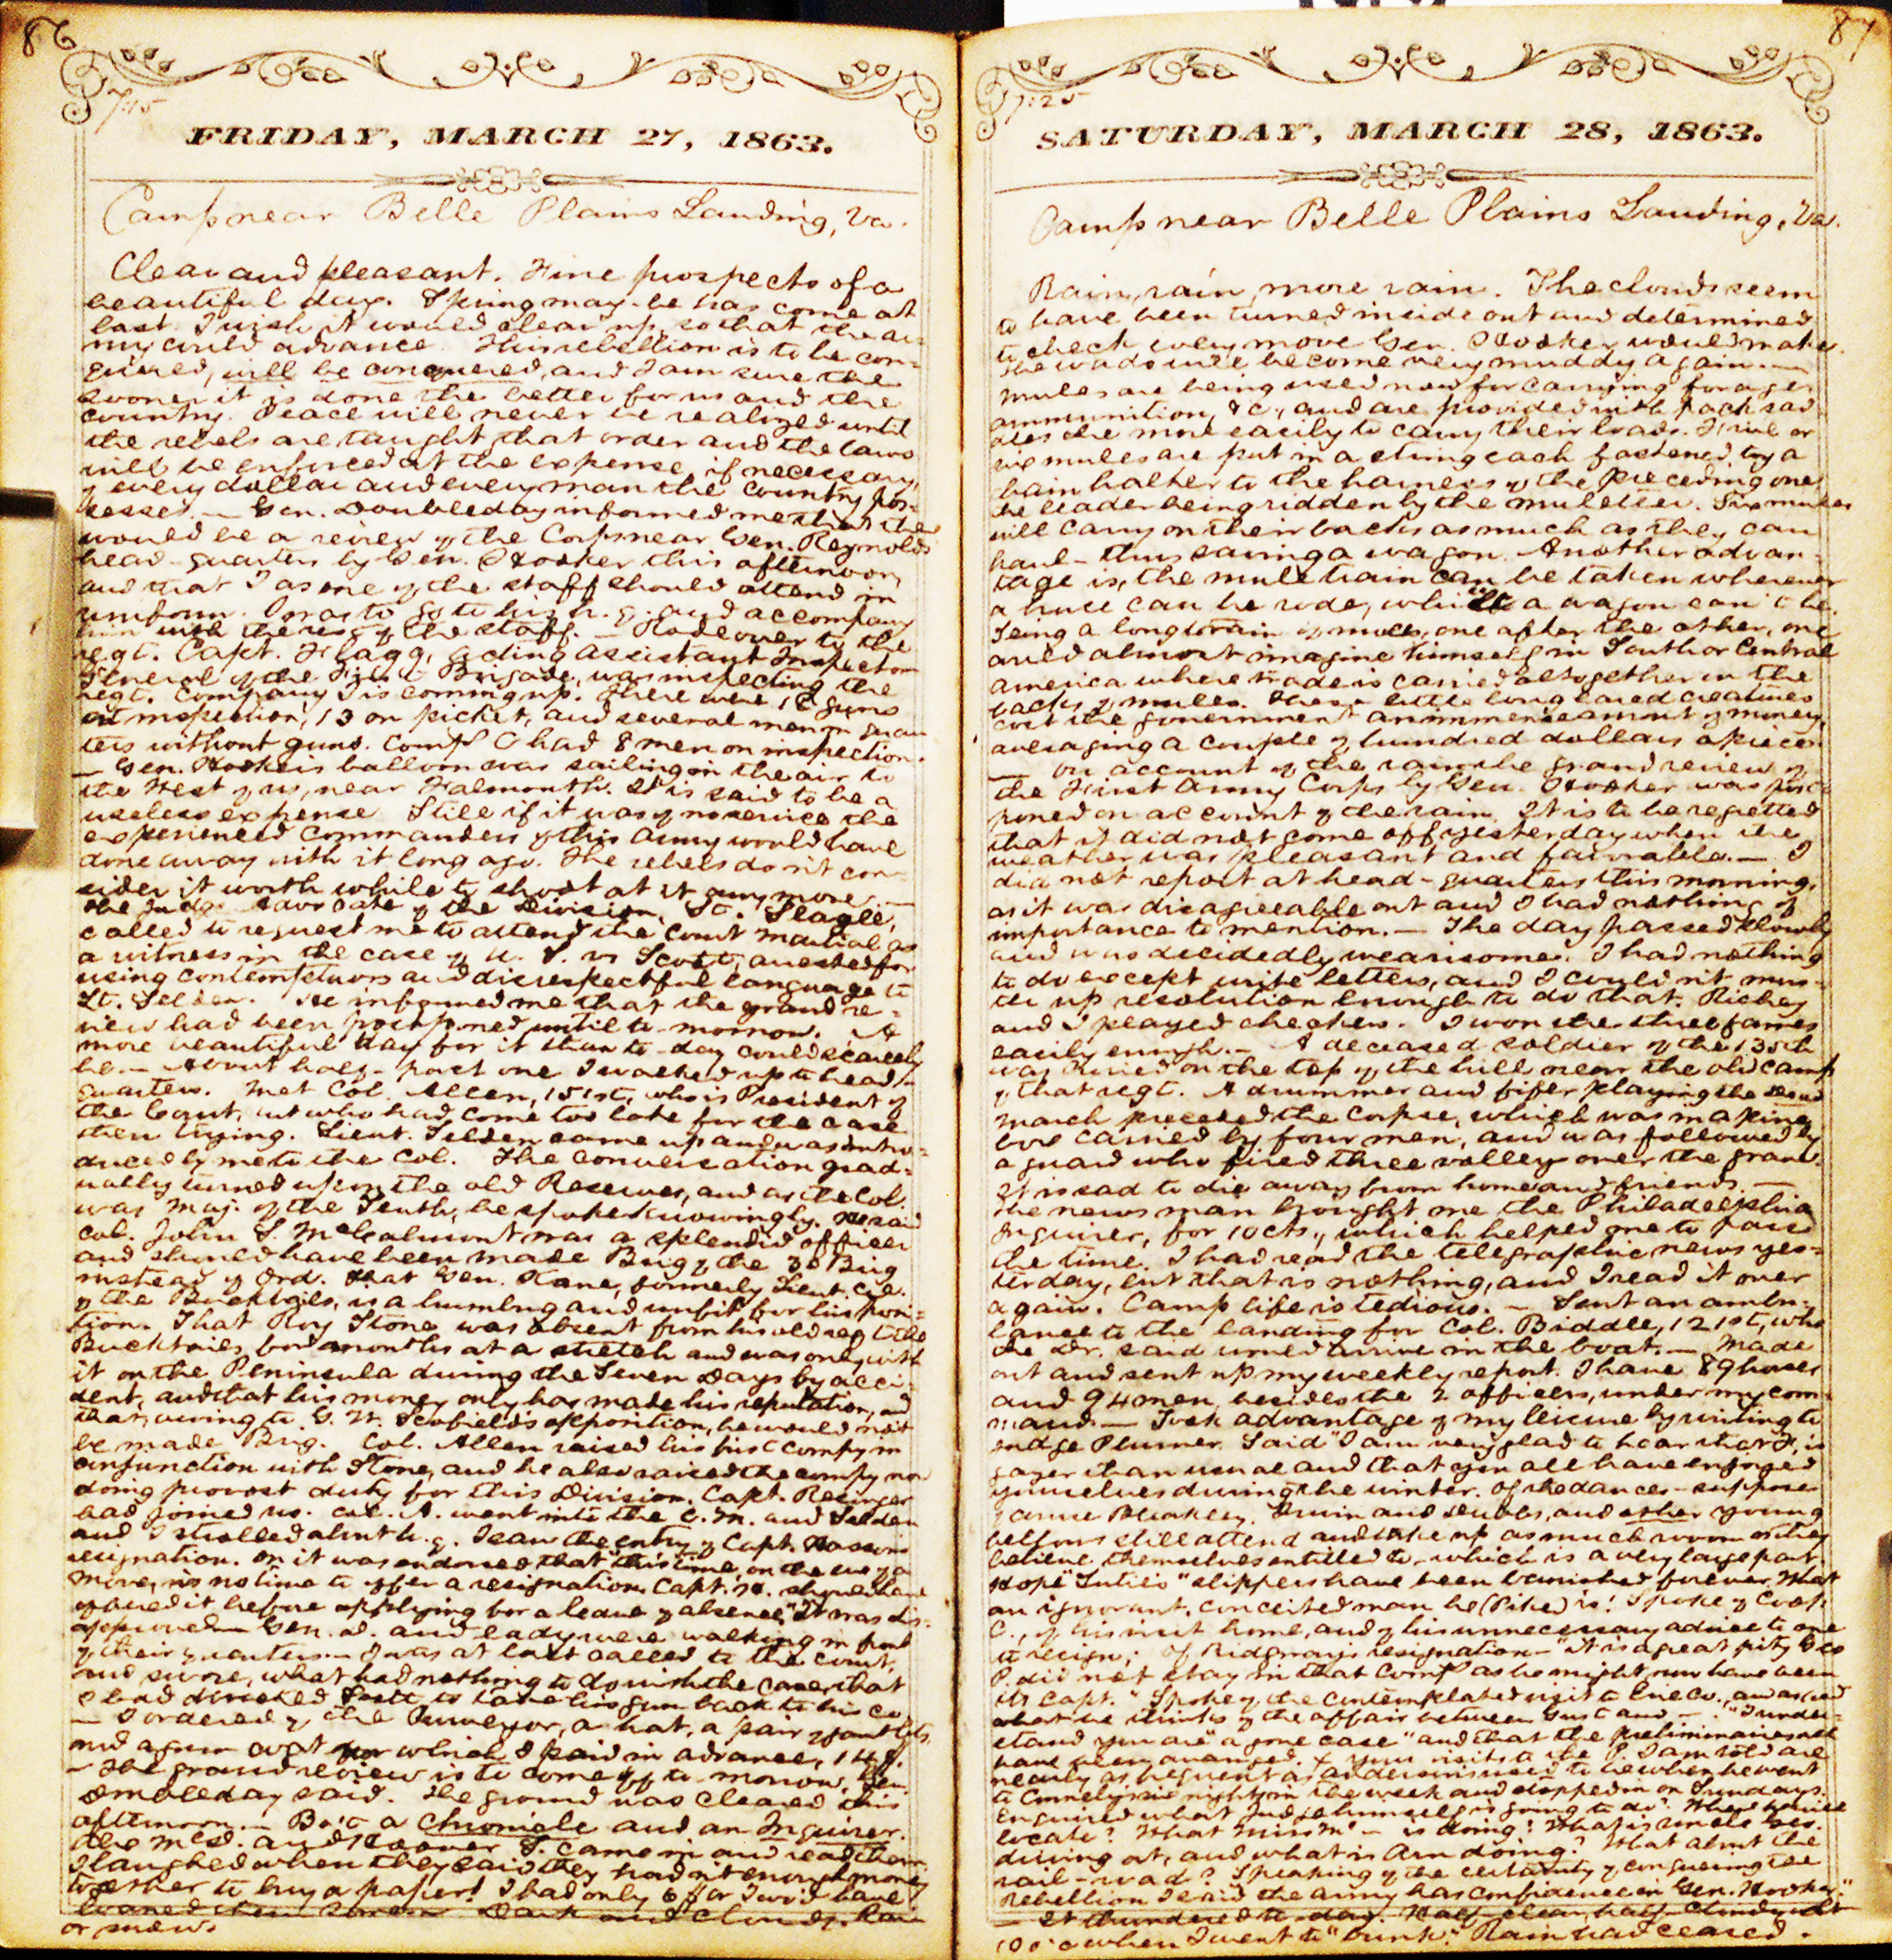 86
7:15
FRIDAY, MARCH 27, 1863.
Camp near Belle Plains Landing, Va.
Clear and pleasant. Fine prospects of a
beautiful day. Spring may-be has come at
last. I wish it would clear up, so that the ar-
my could advance. This rebellion is to be con-
quered, will be conquered, and I am sure the
sooner it is done the better for us and the
country. Peace will never be realized until
the rebels are taught that order and the laws
will be enforced at the expense, if necessary,
of every dollar and every man the country pos-
sesses. — Gen. Doubleday informed me that there
would be a review of the Corps near Gen. Reynolds'
head-quarters by Gen. Hooker this afternoon,
and that I as one of the staff should attend in
uniform. I was to go to his h. q. and accompany
him with the rest of the staff. — Rode over to the
regt. Capt. Flagg, acting assistant Inspector
General of the First Brigade, was inspecting the
regt. Company I is coming up. There were 18 guns
at inspection, 13 on picket, and several men on quar-
ters without guns. Comp C had 8 men on inspection.
— Gen. Hooker's balloon was sailing in the air to
the West of us, near Falmouth. It is said to be a
useless expense. Still if it was of no service the
experienced commanders of this army would have
done away with it long ago. The rebels don't con-
sider it worth while to shoot at it any more. —
The Judge Advocate of the Division, Lt. Slagle,
called to request me to attend the Court Martial as
a witness in the case of U. S. vs Scott, arrested for
using contemptuous and disrespectful language to
Lt. Selden. He informed me that the grand re-
view had been postponed until to-morrow. A
more beautiful day for it than to-day could scarcely
be. — About half-past one I walked up to head-
quarters. Met Col. Allen, 151st, who is President of
the Court, but who had come too late for the case
then trying. Lieut. Selden came up and was intro-
duced by me to the Col. The conversation grad-
ually turned upon the old Reserves, and as the Col.
was Maj. of the Tenth, he spoke knowingly. He said
Col. John S. McCalmont was a splendid officer
and should have been made Brig of the 3d Brig
instead of Ord. That Gen. Kane, formerly Lieut. Col.
of the Bucktails, is a humbug and unfit for his posi-
tion. That Roy Stone was absent from his old regt the
Bucktails, for months at a stretch and was only with
it on the Peninsula during the Seven Days by acci-
dent, and that his money only has made his reputation, and
that, owing to G. W. Scofield's opposition, he would not
be made Brig. Col. Allen raised his first compy in
conjunction with Stone, and he also raised the compy now
doing provost duty for this Division. Capt. Resinger
had joined us. Col. A. went into the C. M. and Selden
and I strolled about h. q. I saw the entry of Capt. Hasson's
resignation. On it was endorsed that "this time, on the eve of a
move, is no time to offer a resignation. Capt. H. should have
offered it before applying for a leave of absence." It was dis-
approved. — Gen. D. and lady were walking in front
of their quarters. — I was at last called to the court,
and swore, what had nothing to do with the case, that
I had directed Scott to take his gun back to his co.
— I ordered of the Purveyor, a hat, a pair of gauntlets,
and a gum coat for which I paid in advance, 14 $.
— The grand review is to come off to-morrow, Gen.
Doubleday said. The ground was cleared this
afternoon. — Bo't a Chronicle and an Inquirer.
Abe McD. and Hoover S. came in and read them.
I laughed when they said they hadn't enough money
together to buy a paper! I had only 6 $ or I wo'd have
loaned them some. Dark and cloudy. Rain
or snow.
87
7:25
SATURDAY, MARCH 28, 1863.
Camp near Belle Plains Landing, Va.
Rain, rain, more rain. The clouds seem
to have been turned inside out and determined
to check every move Gen. Hooker would make.
The roads will become very muddy again. —
Mules are being used now for carrying forages
ammunition, &c., and are provided with pack sad-
dles the more easily to carry their loads. Five or
six mules are put in a string each fastened by a
chain halter to the harness of the preceding one,
the leader being ridden by the muleteer. Six mules
will carry on their backs as much as they can
haul - thus saving a wagon. Another advan-
tage is, the mule train can be taken wherever
a horse can be rode, while a wagon can't be.
Seeing a long train of mules, one after the other, one
could almost imagine himself in South or Central
America where trade is carried altogether on the
backs of mules. These little long eared creatures
cost the government an immense amount of money,
averaging a couple of hundred dollars apiece.
— On account of the rain the grand review of
the First Army Corps by Gen. Hooker was post-
poned on account of the rain. It is to be regretted
that it did not come off yesterday when the
weather was pleasant and favorable. — I
did not report at head-quarters this morning,
as it was disagreeable out and I had nothing of
importance to mention. — The day passed slowly
and was decidedly wearisome. I had nothing
to do except write letters, and I couldn't mus-
ter up resolution enough to do that. Richey
and I played checkers. I won the three games
easily enough. — A deceased soldier of the 135th
was buried on the top of the hill near the old camp
of that regt. A drummer and fifer playing the dead
march preceded the corpse, which was in a pine
box carried by four men, and was followed by
a guard who fired three volleys over the grave.
It is sad to die away from home and friends. —
The news man brought me the Philadelphia
Inquirer, for 10 cts., which helped me to pass
the time. I had read the telegraphic news yes-
terday, but that is nothing, and I read it over
again. Camp life is tedious. — Sent an ambu-
lance to the landing for Col. Biddle, 121st, who
the Dr. said would arrive in the boat. — Made
out and sent up my weekly report. I have 89 horses
and 94 men, besides the 2 officers, under my com-
mand. — Took advantage of my leisure by writing to
Judge Plumer. Said "I am very glad to hear that F. is
gayer than usual and that you all have enjoyed
yourselves during the winter. Of the dances - suppose
Irwin and Dubbs, and other young
fellows still attend and take up as much room as they
believe themselves entitled to - which is a very large part.
Hope "Tutie's" slippers have been banished forever. What
an ignorant, conceited man he (Pike) is! Spoke of Cook
C., of his visit home, and of his unnecessary advice to one
to resign; of Ridgway's resignation - "it is a great pity Geo
P. did not stay in that comp as he might now have been
its Capt." Spoke of the contemplated visit to Erie Co., and asked
what he thinks of the affair between Gust and — . "I under-
stand you are "a gone case" and that the preliminaries all
have been arranged. & your visits a the P. I am told are
nearly as frequent as Anderson's used to be when he went
to Connely's six nights in the week and stopped in on Sundays.
Enquired what Judge himself is going to do? Where he will
locate? What Miss M — is doing? What is Uncle Geo.
driving at, and what is Arn doing? What about the
rail-road? Speaking of the certainty of conquering the
rebellion I said the army has confidence in Gen. Hooker."
— It thundered to-day. Half clear, half cloudy at
10 o'c when I went to "bunk." Rain had ceased.